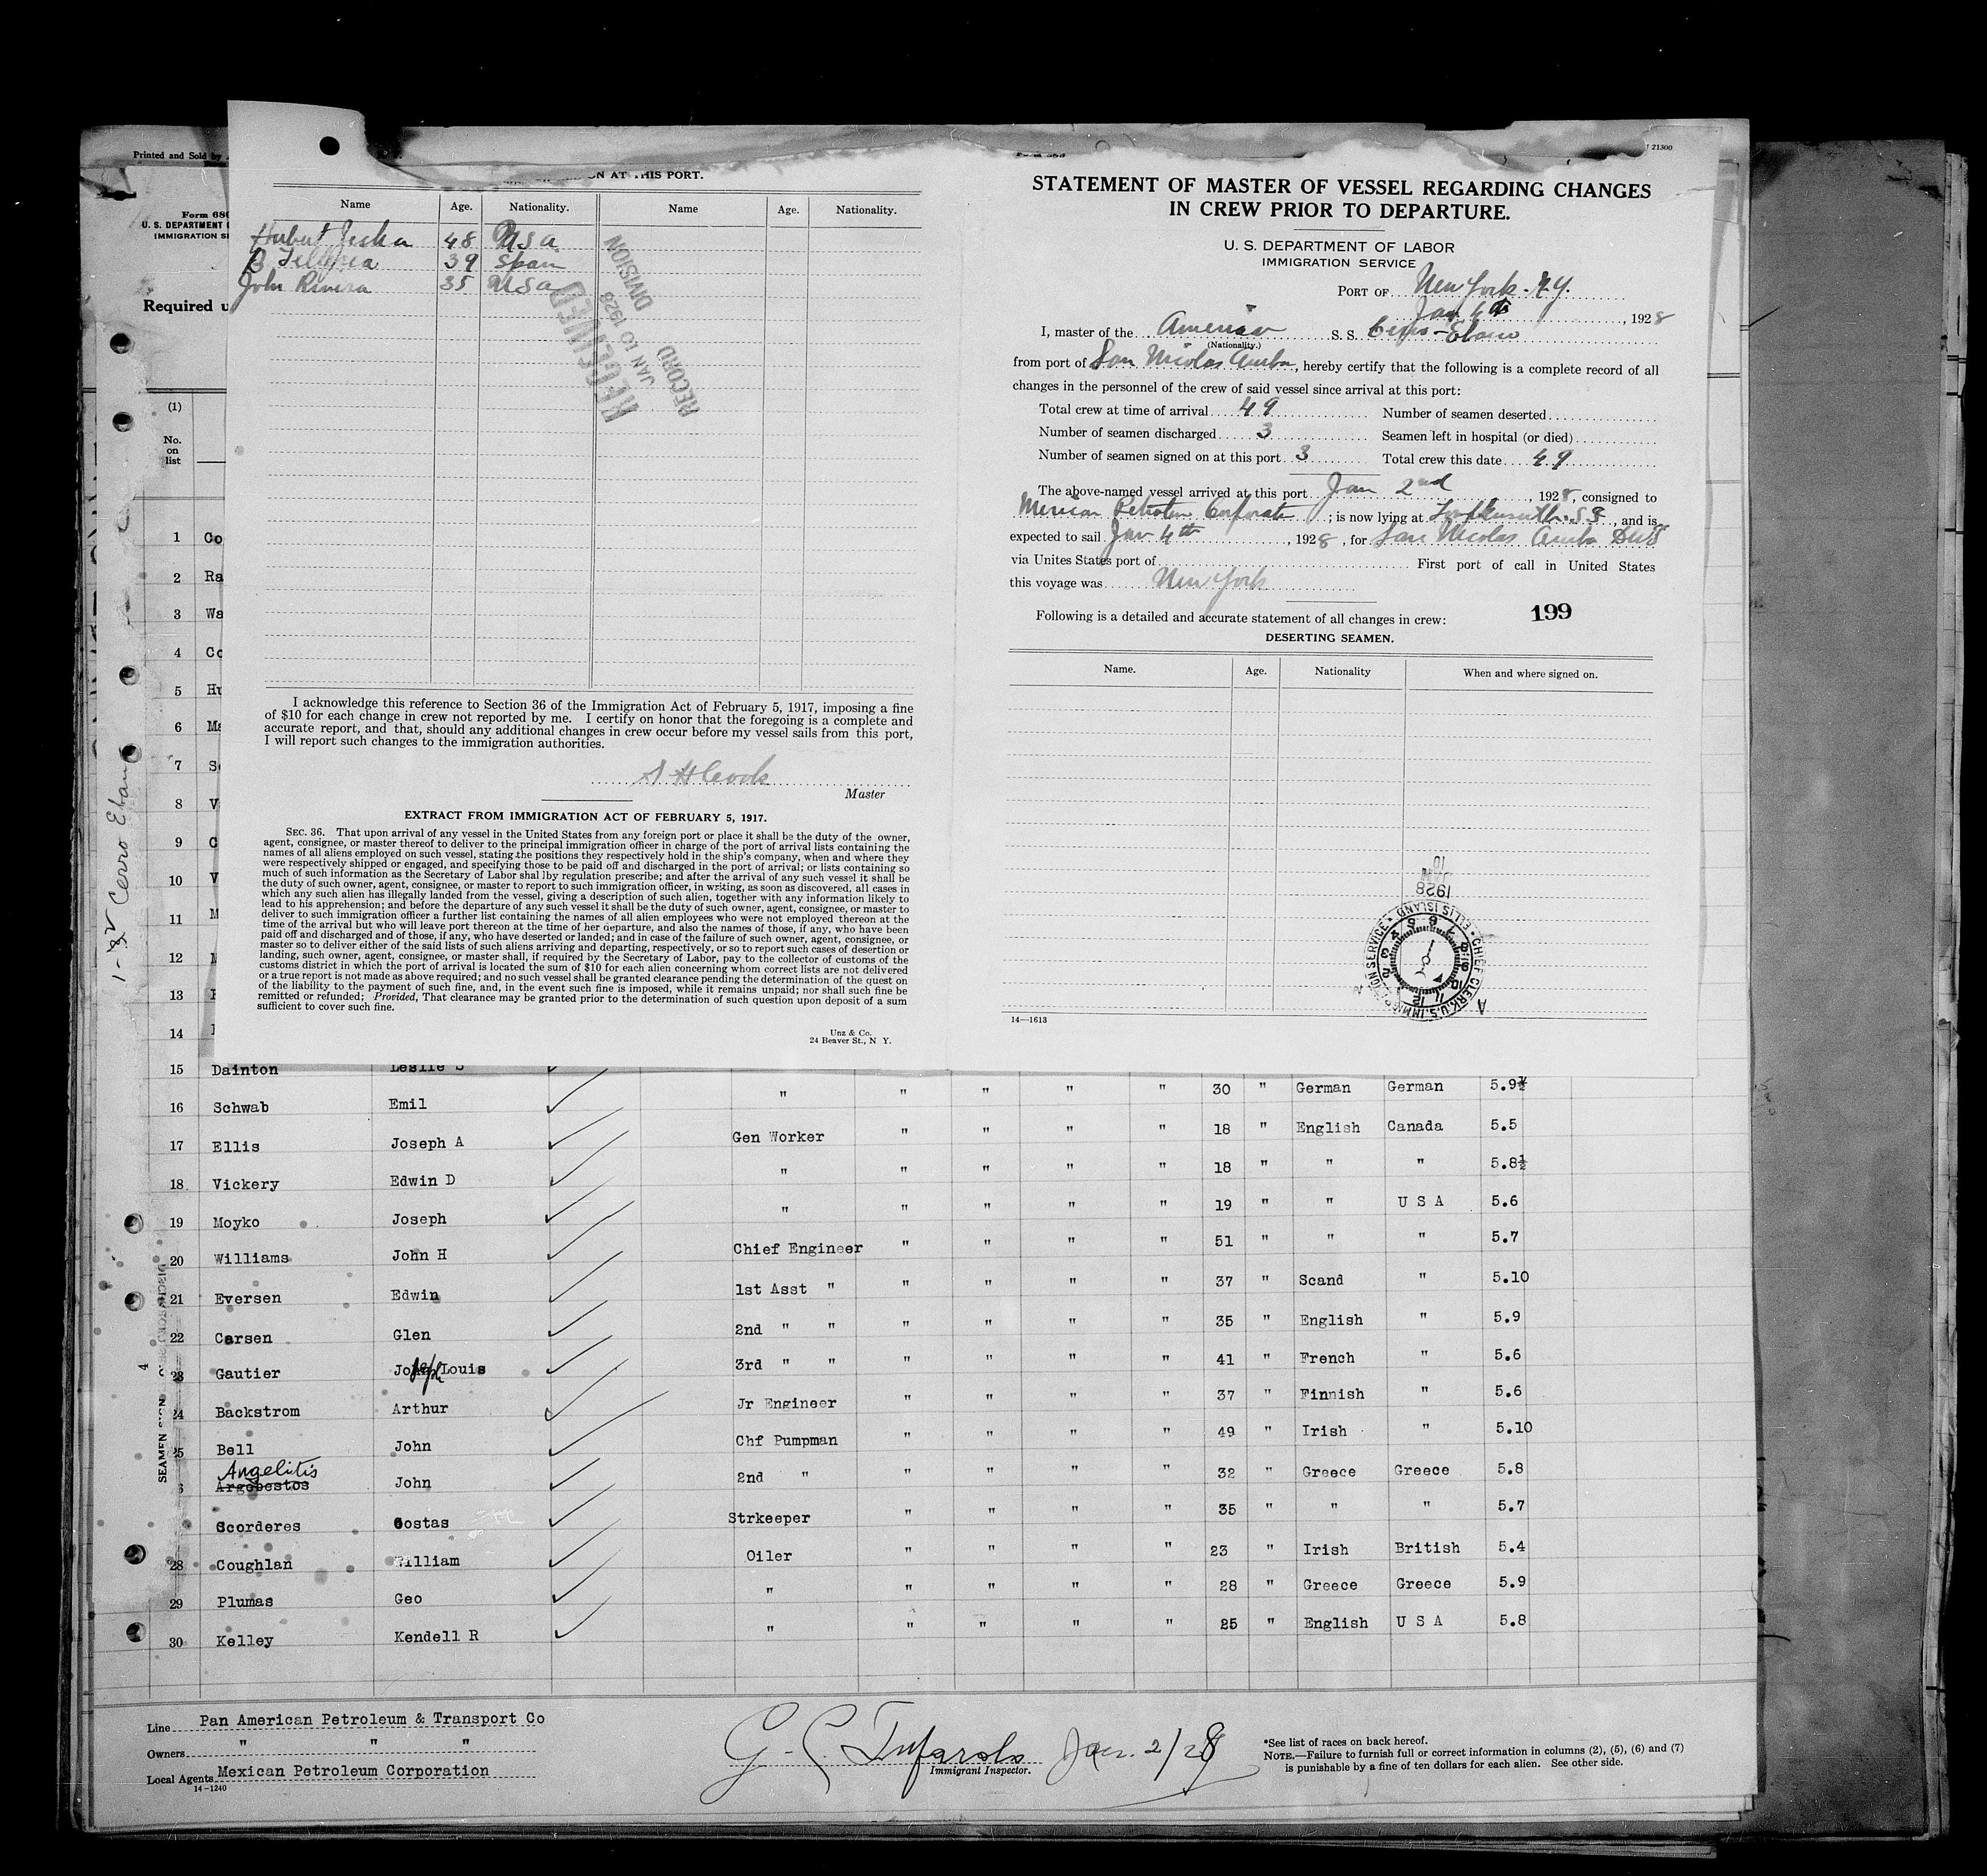 Printed and Sold by
Form 680
U. S. DEPARTMENT
IMMIGRATION SE
Required u
(1)
No.
on
list
1 Co
2 Ra
3 Wa
4 Co
5 Hu
6 Ma
7 Sc
8 V
9 C
10 V
11 M
12
13
14
1- Cerro Ebano
ON AT THIS PORT.
Name Age. Nationality. Name Age. Nationality.
Hubert Jeska 48 USA
B. 39 Spain
John Rivera 35 USA
RECEIVED
JAN 10 1928
RECORD DIVISION
I acknowledge this reference to Section 36 of the Immigration Act of February 5, 1917, imposing a fine
of $10 for each change in crew not reported by me. I certify on honor that the foregoing is a complete and
accurate report, and that, should any additional changes in crew occur before my vessel sails from this port,
I will report such changes to the immigration authorities.
S H Cook
Master
EXTRACT FROM IMMIGRATION ACT OF FEBRUARY 5, 1917.
SEC. 36. That upon arrival of any vessel in the United States from any foreign port or place it shall be the duty of the owner,
agent, consignee, or master thereof to deliver to the principal immigration officer in charge of the port of arrival lists containing the
names of all aliens employed on such vessel, stating the positions they respectively hold in the ship's company, when and where they
were respectively shipped or engaged, and specifying those to be paid off and discharged in the port of arrival; or lists containing so
much of such information as the Secretary of Labor shal lby regulation prescribe; and after the arrival of any such vessel it shall be
the duty of such owner, agent, consignee, or master to report to such immigration officer, in writing, as soon as discovered, all cases in
which any such alien has illegally landed from the vessel, giving a description of such alien, together with any information likely to
lead to his apprehension; and before the departure of any such vessel it shall be the duty of such owner, agent, consignee, or master to
deliver to such immigration officer a further list containing the names of all alien employees who were not employed thereon at the
time of the arrival but who will leave port thereon at the time of her departure, and also the names of those, if any, who have been
paid off and discharged and of those, if any, who have deserted or landed; and in case of the failure of such owner, agent, consignee, or
master so to deliver either of the said lists of such aliens arriving and departing, respectively, or so to report such cases of desertion or
landing, such owner, agent, consignee, or master shall, if required by the Secretary of Labor, pay to the collector of customs of the
customs district in which the port of arrival is located the sum of $10 for each alien concerning whom correct lists are not delivered
or a true report is not made as above required; and no such vessel shall be granted clearance pending the determination of the quest on
of the liability to the payment of such fine, and, in the event such fine is imposed, while it remains unpaid; nor shall such fine be
remitted or refunded; Provided, That clearance may be granted prior to the determination of such question upon deposit of a sum
sufficient to cover such fine.
Unz & Co.
24 Beaver St., N Y.
21300
STATEMENT OF MASTER OF VESSEL REGARDING CHANGES
IN CREW PRIOR TO DEPARTURE.
U. S. DEPARTMENT OF LABOR
IMMIGRATION SERVICE
PORT OF New York. N.Y.
Jan 4th, 1928
I, master of the American S. S. Cerro-Ebano
(Nationality.)
from port of San Nicolas Aruba, hereby certify that the following is a complete record of all
changes in the personnel of the crew of said vessel since arrival at this port:
Total crew at time of arrival 49 Number of seamen deserted
Number of seamen discharged 3 Seamen left in hospital (or died)
Number of seamen signed on at this port 3 Total crew this date 49
The above-named vessel arrived at this port Jan 2nd, 1928, consigned to
Mexican Petroleum Corporation; is now lying at , and is
expected to sail Jan 4th, 1928, for San Nicolas Aruba DWI
via Unites States port of First port of call in United States
this voyage was New York
199
Following is a detailed and accurate statement of all changes in crew:
DESERTING SEAMEN.
Name. Age. Nationality When and where signed on.
JAN 10
1928
CHIEF CLERK, U.S. IMMIGRATION SERVICE • ELLIS ISLAND
14—1613
15 Dainton Leslie S
16 Schwab Emil " " " " " 30 " German German 5.9½
17 Ellis Joseph A Gen Worker " " " " 18 " English Canada 5.5
18 Vickery Edwin D " " " " " 18 " " " 5.8½
19 Moyko Joseph " " " " " 19 " " U S A 5.6
20 Williams John H Chief Engineer " " " " 51 " " " 5.7
21 Eversen Edwin 1st Asst " " " " " 37 " Scand " 5.10
22 Carsen Glen 2nd " " " " " " 35 " English " 5.9
23 Gautier Joseph Louis 3rd " " " " " " 41 " French " 5.6
24 Backstrom Arthur Jr Engineer " " " " 37 " Finnish " 5.6
25 Bell John Chf Pumpman " " " " 49 " Irish " 5.10
Angelitis
6 Argobestos John 2nd " " " " " 32 " Greece Greece 5.8
Scorderes Costas Strkeeper " " " " 35 " " " 5.7
28 Coughlan William Oiler " " " " 23 " Irish British 5.4
29 Plumas Geo " " " " " 28 " Greece Greece 5.9
30 Kelley Kendell R " " " " " 25 " English U S A 5.8
SEAMEN SIGN
4
Line Pan American Petroleum & Transport Co
Owners " " "
Local Agents Mexican Petroleum Corporation
14-1240
Jan. 2/28
Immigrant Inspector.
*See list of races on back hereof.
NOTE.—Failure to furnish full or correct information in columns (2), (5), (6) and (7)
is punishable by a fine of ten dollars for each alien. See other side.